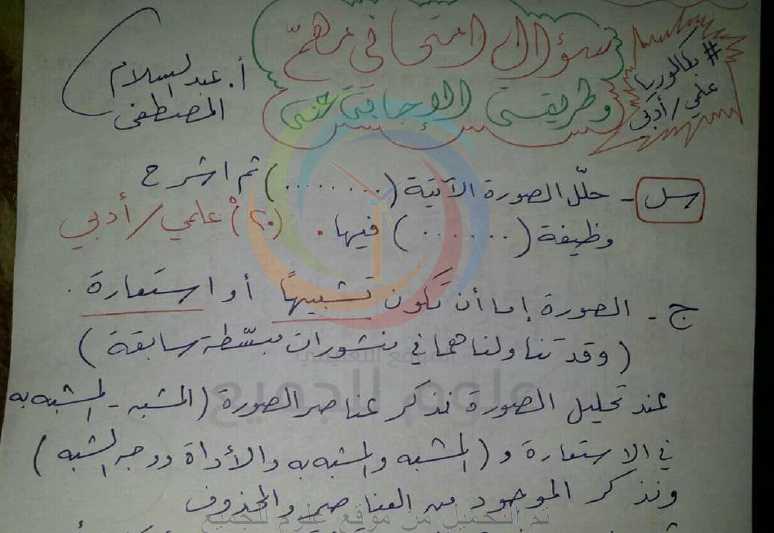 سؤال امتحاني مهمّ
وطريقة الإجابة عنه
# بكالوريا
علمي/أدبي
أ. عبد السلام
المصطفى
س - حلّل الصورة الآتية (........) ثم اشرح
وظيفة (......) فيها. (٢٠°) علمي/أدبي
ج - الصورة إما أن تكون تشبيهاً أو استعارة.
(وقد تناولناهما في منشورات مبسّطة سابقة)
عند تحليل الصورة نذكر عناصر الصورة (المشبه - المشبه به
في الاستعارة و (المشبه والمشبه به والأداة ووجه الشبه)
ونذكر الموجود من العناصر والمحذوف
تم التحميل من موقع علوم للجميع